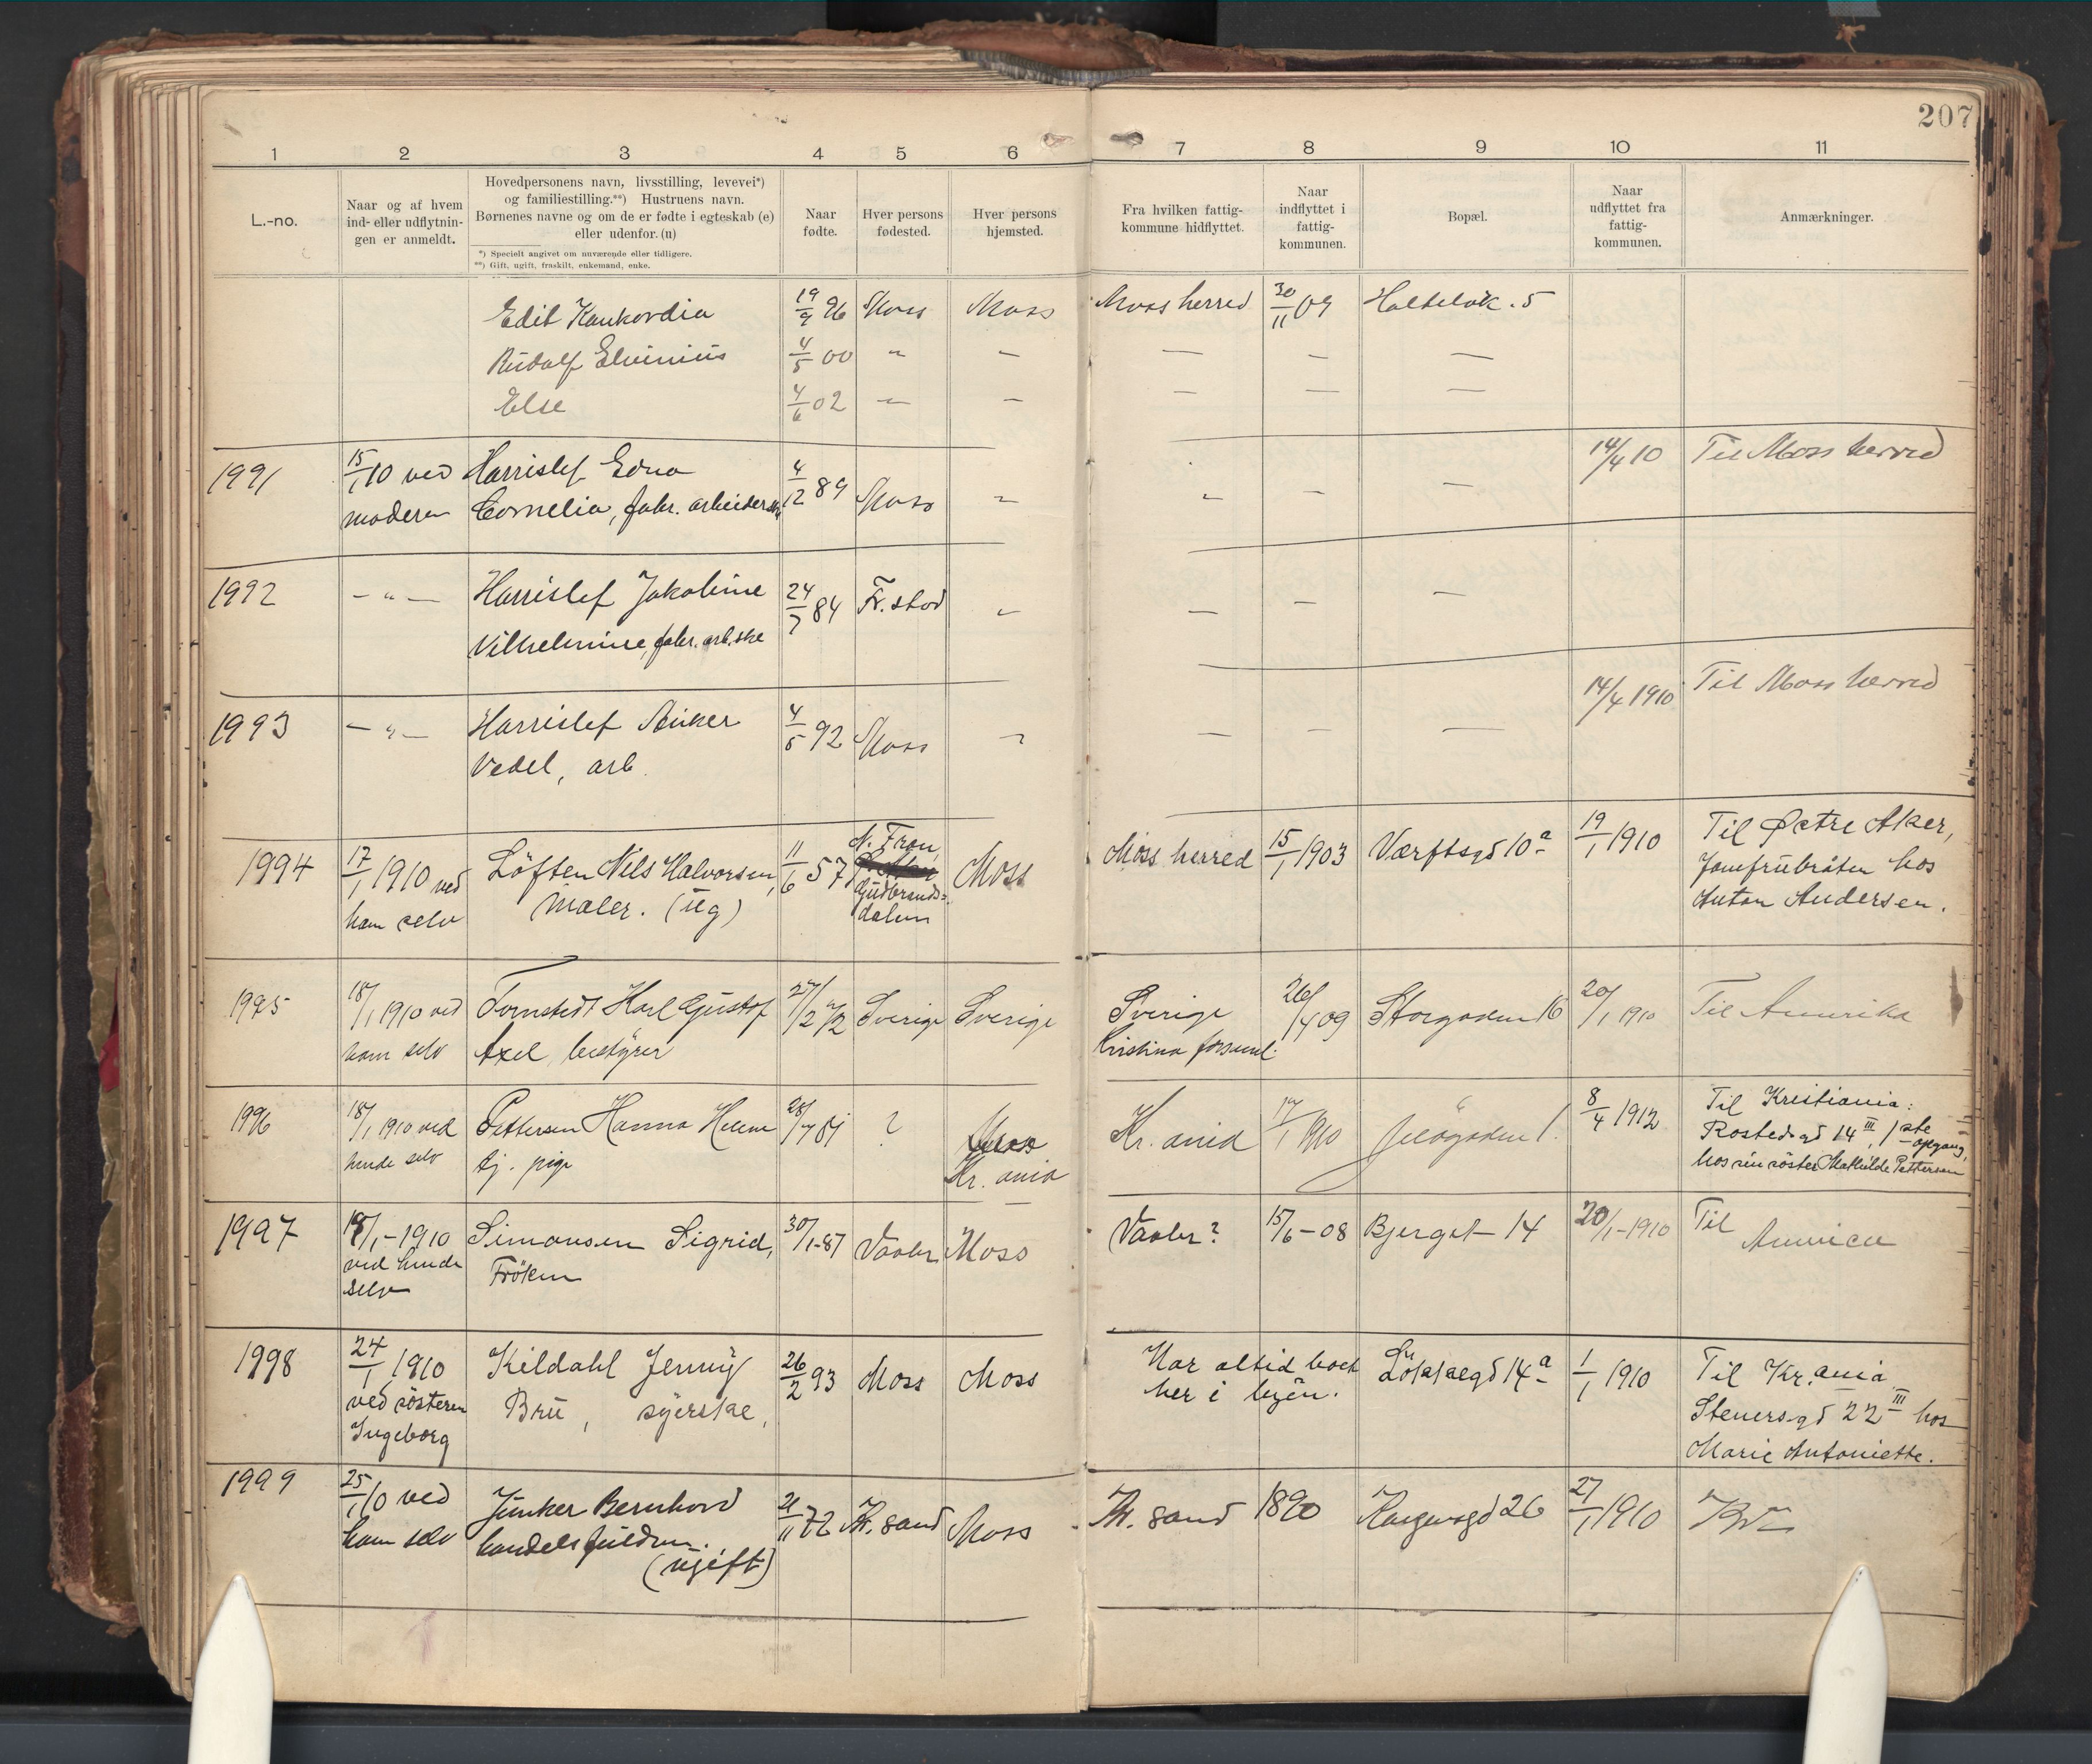 207
1 2 3 4 5 6 7 8 9 10 11
L.-no.
Naar og af hvem
ind- eller udflytnin-
gen er anmeldt.
Hovedpersonens navn, livsstilling, levevei*)
og familiestilling.**) Hustruens navn.
Børnenes navne og om de er fødte i egteskab (e)
eller udenfor. (u)
*) Specielt angivet om nuværende eller tidligere.
**) Gift, ugift, fraskilt, enkemand, enke.
Naar
fødte.
Hver persons
fødested.
Hver persons
hjemsted.
Fra hvilken fattig-
kommune hidflyttet.
Naar
indflyttet i
fattig-
kommunen.
Bopæl.
Naar
udflyttet fra
fattig-
kommunen.
Anmærkninger.
Edit Konkordia 19/9 96 Moss Moss Moss herred 30/11 09 5
Rudolf 4/5 00 " — — — —
Else 4/6 02 — — — — —
1991 15/1 10 ved Harrislef Edna 4/12 89 Moss " " — — 14/4 10 Til Moss herred
moderen Cornelia, fabr. arbeiderske
1992 — " — Harrislef Jakobine 24/7 84 Fr.stad " — — —
Vilhelmine, fabr. arb.ske
1993 — " — Harrislef Anker 4/5 92 Moss " — — — 14/4 1910 Til Moss herred
Vedel, arb.
1994 17/1 1910 ved Löften Nils Halvorsen, 11/6 57 N. Fron, Moss Moss herred 15/1 1903 Værftsgd 10 a 19/1 1910 Til Østre Aker,
ham selv Maler. (ug) Gudbrands=
dalen
Jomfrubråten hos
Anton Andersen.
1995 18/1 1910 ved Tornstedt Karl Gustof 27/2 72 Sverige Sverige Sverige 26/4 09 Storgaden 16 20/1 1910 Til Amerika
ham selv Axel, bestyrer Kristina forsaml.
1996 18/1 1910 ved Pettersen Hanna Helene 28/4 81 ? Moss Kr.ania 17/1 1910 Jeløgaden 1. 8/4 1912 Til Kristiania:
hende selv tj. pige Kr.ania
Rostedsgd 14 III, 1 ste opgang,
hos sin söster Mathilde Pettersen
1997 18/1-1910 Simonsen Sigrid, 30/1-87 Vaaler Moss Vaaler? 15/6-08 Bjerget 14 20/1-1910 Til America
ved hende Fröken
selv
1998 24/1 1910 Kildahl Jenny 26/2 93 Moss Moss Har altid boet 14 a 1/1 1910 Til Kr.ania
ved sösteren Bru, syerske, her i byen.
Ingeborg
Stenersgd 22 III hos
Marie Antoniette.
1999 25/1 10 ved Junker Bernhard 21/11 72 Kr.sand Moss Kr.sand 1890 Kongensgd 26 27/1 1910
ham selv handelsfuldm.
(ugift)